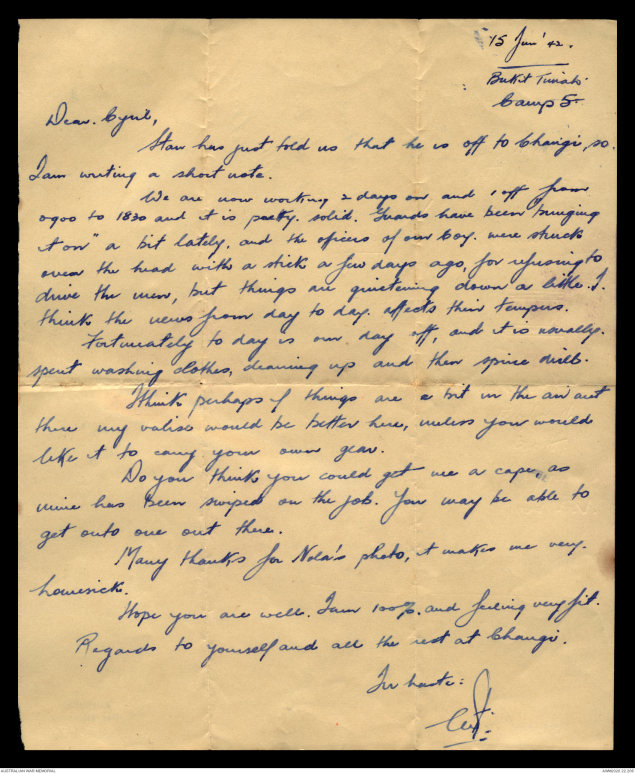 15 Jun' 42.
Bukit Timah.
Camp 5.
Dear Cyril,
Stan has just told us that he is off to Changi, so
I am writing a short note.
We are now working 2 days on and 1 off from
0900 to 1830 and it is pretty solid. Guards have been "bunging
it on" a bit lately, and the officers of our Coy. were struck
over the head with a stick a few days ago, for refusing to
drive the men, but things are quietening down a little. I
think the news from day to day affects their tempers.
Fortunately to day is our day off, and it is usually
spent washing clothes, cleaning up and then spine drill.
I think perhaps if things are a bit in the air out
there my valise would be better here, unless you would
like it to carry your own gear.
Do you think you could get me a cape, as
mine has been swiped on the job. You may be able to
get onto one out there.
Many thanks for Nola's photo, it makes me very
homesick.
Hope you are well. I am 100% and feeling very fit.
Regards to yourself and all the rest at Changi.
In haste:
AUSTRALIAN WAR MEMORIAL